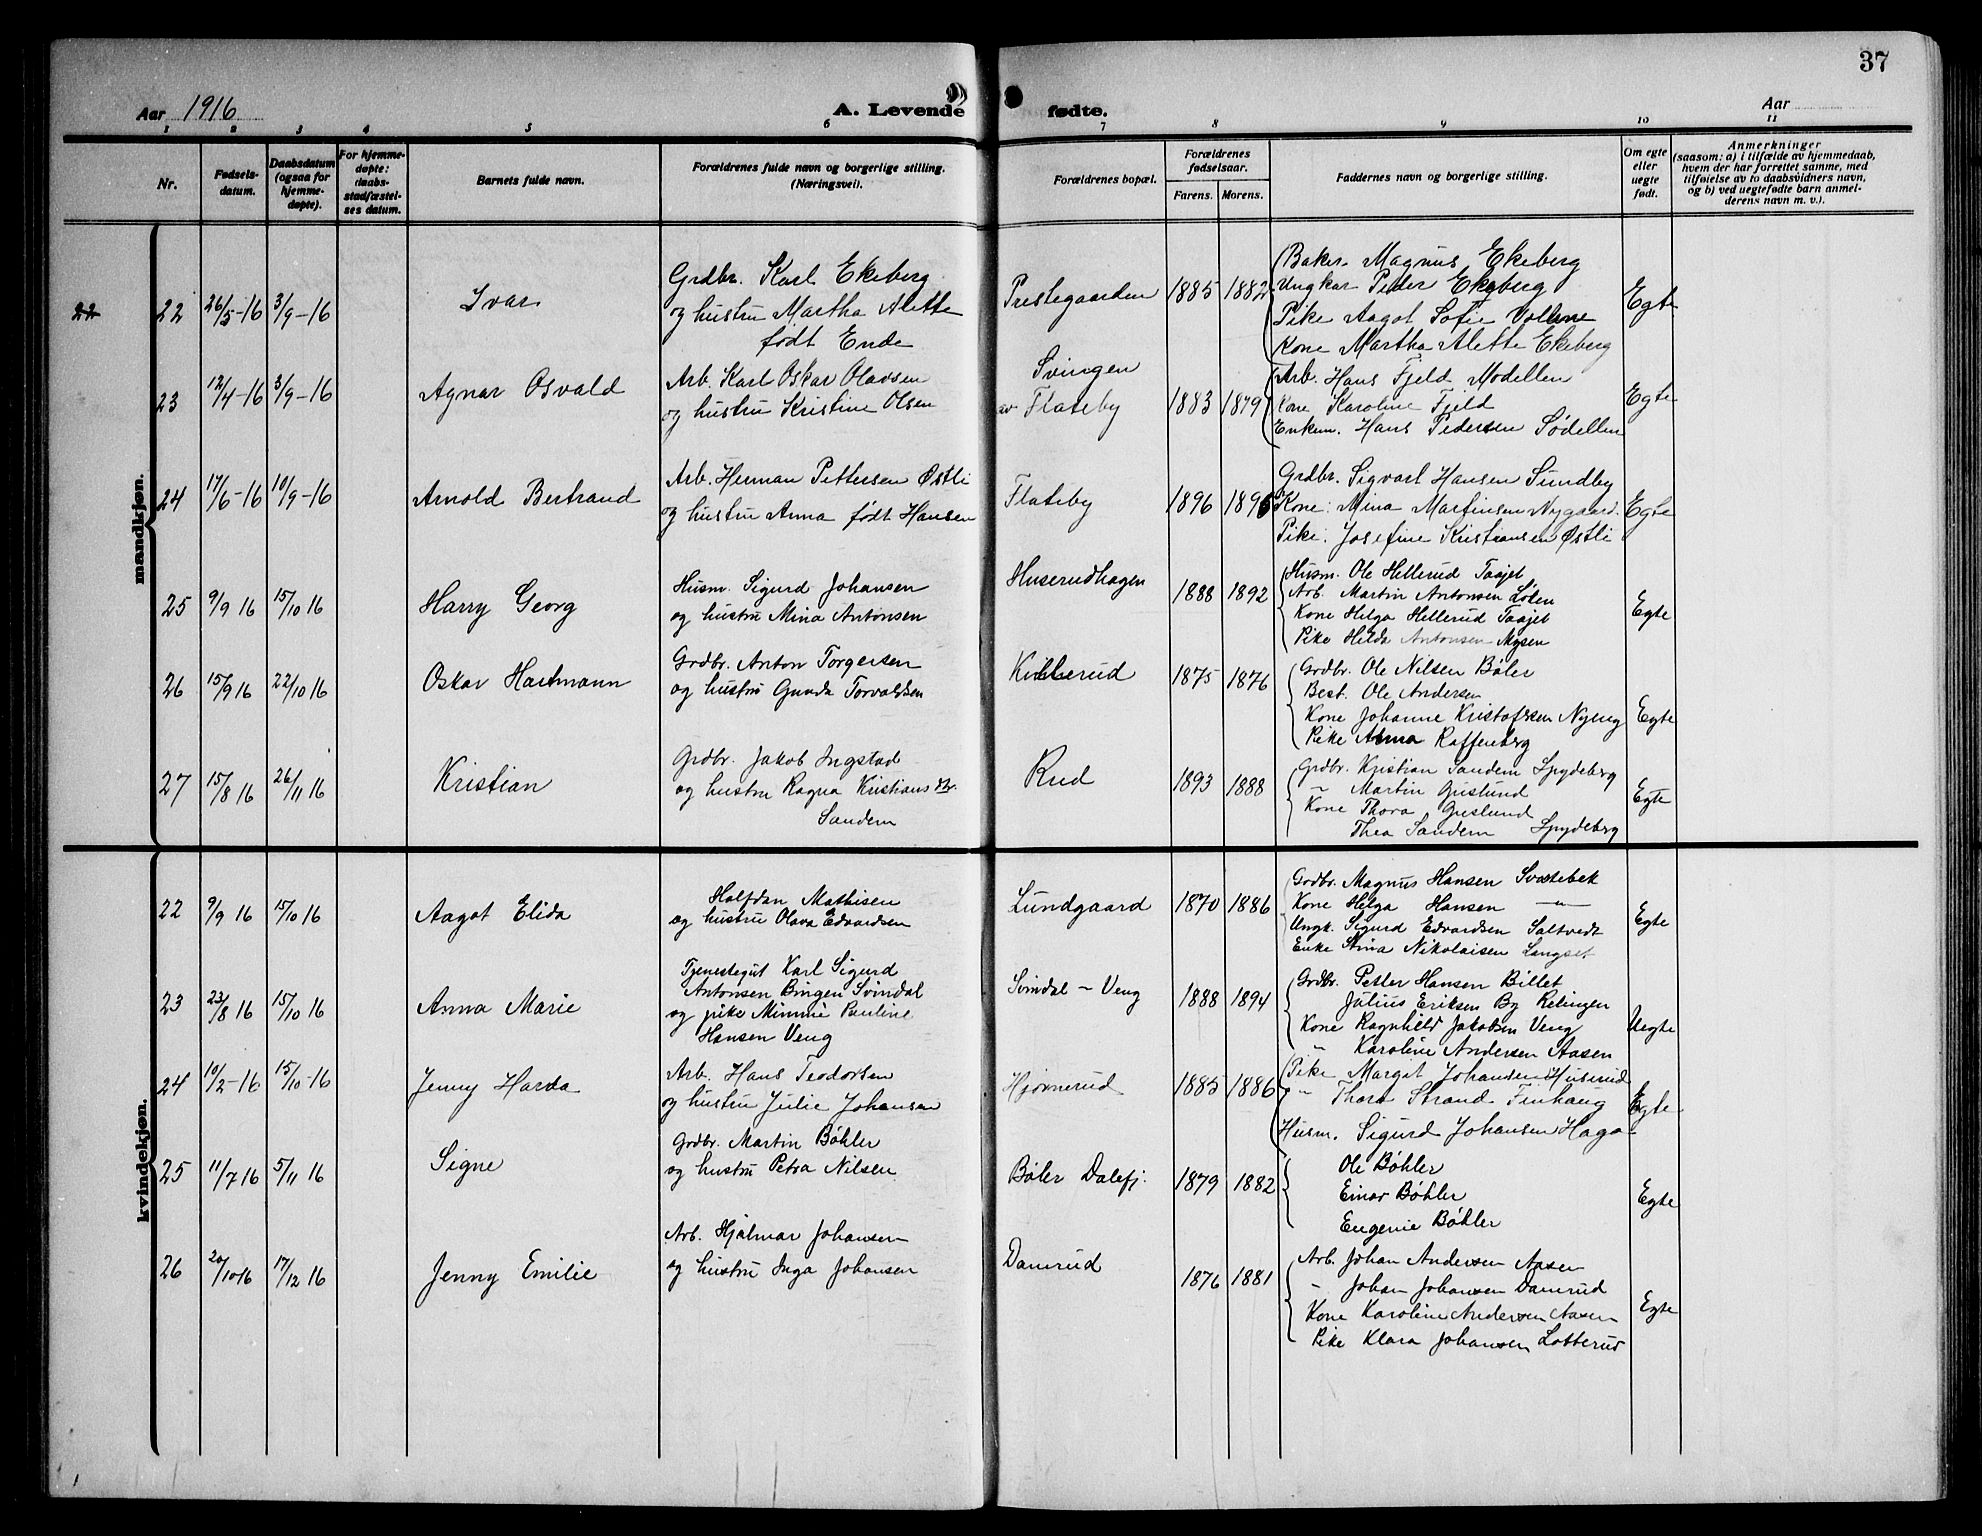 37
Aar 1916
A. Levende fødte.
Aar
1 2 3 4 5 6 7 8 9 10 11
Nr.
Fødsels-
datum.
Daabsdatum
(ogsaa for
hjemme-
døpte).
For hjemme-
døpte:
daabs-
stadfæstel-
ses datum.
Barnets fulde navn.
Forældrenes fulde navn og borgerlige stilling.
(Næringsvei).
Forældrenes bopæl.
Forældrenes
fødselsaar.
Farens. Morens.
Faddernes navn og borgerlige stilling.
Om egte
eller
uegte
født.
Anmerkninger
(saasom: a) i tilfælde av hjemmedaab,
hvem der har forrettet samme, med
tilføielse av to daabsvidners navn,
og b) ved uegtefødte barn anmel-
derens navn m. v.).
mandkjøn.
22 22 26/5-16 3/9-16 Ivar
Grdbr. Karl Ekeberg
og hustru Martha Alette
født Ende
Prestegaarden 1885 1882
Baker Magnus Ekeberg
Ungkar Peder Ekeberg
Pike Aagot Sofie Vollene
Kone Martha Alette Ekeberg
Egte
23 12/4-16 3/9-16 Agnar Osvald
Arb. Karl Oskar Olavsen
og hustru Kristine Olsen
Svingen
av Flateby 1883 1879
Arb. Hans Fjeld Modellen
Kone Karoline Fjeld
Enkem. Hans Pedersen Sødellen
Egte
24 17/6-16 10/9-16 Arnold Bertrand
Arb. Herman Pettersen Østli
og hustru Anna født Hansen
Flateby 1896 1896
Grdbr. Sigvart Hansen Sundby
Kone: Mina Martinsen Nygaard.
Pike: Josefine Kristiansen Østli
Egte
25 9/9 16 15/10 16 Harry Georg
Husm. Sigurd Johansen
og hustru Mina Antonsen
Huserudhagen 1888 1892
Husm. Ole Hellerud Taajet
Arb. Martin Antonsen Løten
Kone Helga Hellerud Taajet
Pike Hilda Antonsen Mysen
Egte
26 15/9 16 22/10 16 Oskar Hartmann
Grdbr. Anton Torgersen
og hustru Gunda Torvaldsen
Kvikkerud 1875 1876
Grdbr. Ole Nilsen Bøler
Best. Ole Andersen
Kone Johanne Kristofersen Nyeng
Pike Anna Koffenberg
Egte
27 15/8 16 26/11 16 Kristian
Grdbr. Jakob Ingstad
og hustru Ragna Kristians dtr.
Sandem
Rud 1893 1888
Grdbr. Kristian Sandem Spydeberg
" Martin Grislund
Kone Thora Grislund
Thea Sandem Spydeberg
Egte
kvindekjøn.
22 9/9 16 15/10 16 Aagot Elida
Halfdan Mathisen
og hustru Olava Edvardsen
Lundgaard 1870 1886
Grdbr. Magnus Hansen Svatebek
Kone Helga Hansen — " —
Ungk. Sigurd Edvardsen Saltvedt
Enke Stina Nikolaisen Langset
Egte
23 23/8 16 15/10 16 Anna Marie
Tjenestegut Karl Sigurd
Antonsen Bingen Svindal
og pike Mimmi Pauline
Hansen Veng
Svindal - Veng 1888 1894
Grdbr. Petter Hansen Billet
Julius Eriksen By Relingen
Kone Ragnhild Jakobsen Veng
" Karoline Andersen Aasen
Uegte
24 10/2-16 15/10-16 Jenny Harda
Arb. Hans Teodorsen
og hustru Julie Johansen
Hjørnerud 1885 1886
Pike Margit Johansen Huserud
" Thora Strand Finhaug
Husm. Sigurd Johansen Haga
Egte
25 11/7 16 5/11 16 Signe
Grdbr. Martin Bøhler
og hustru Petra Nilsen
Bøler Dalefj. 1879 1882
Ole Bøhler
Einar Bøhler
Eugenie Bøhler
Egte
26 20/10 16 17/12 16 Jenny Emilie
Arb. Hjalmar Johansen
og hustru Inga Johansen
Damrud 1876 1881
Arb. Johan Andersen Aasen
" Johan Johansen Damrud
Kone Karoline Andersen Aasen
Pike Klara Johansen Lotterud
Egte